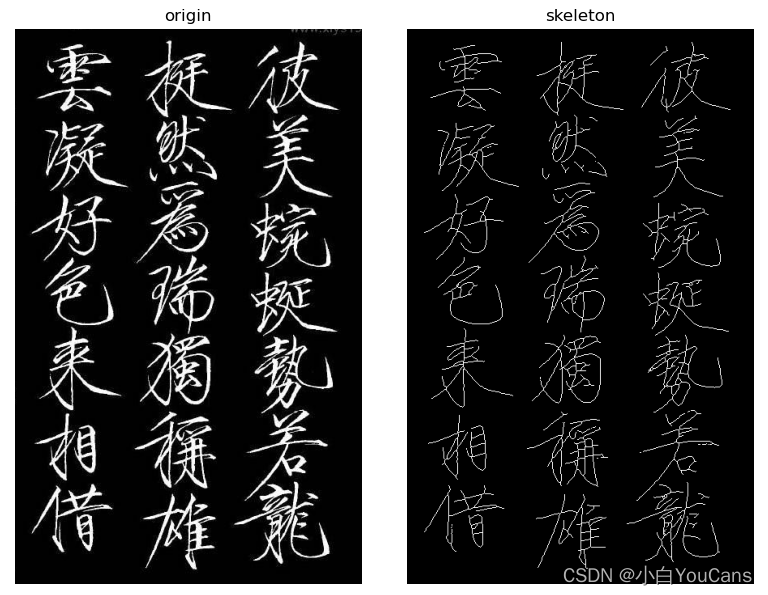 origin
彼美蜿蜒勢若龍
挺然爲瑞獨稱雄
雲凝好色来相借
skeleton
彼美蜿蜒勢若龍
挺然爲瑞獨稱雄
雲凝好色来相借
CSDN @小白YouCans